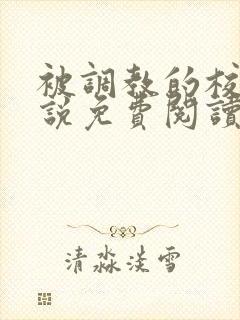 被調教的校
說免費閱讀
清淼淡雪